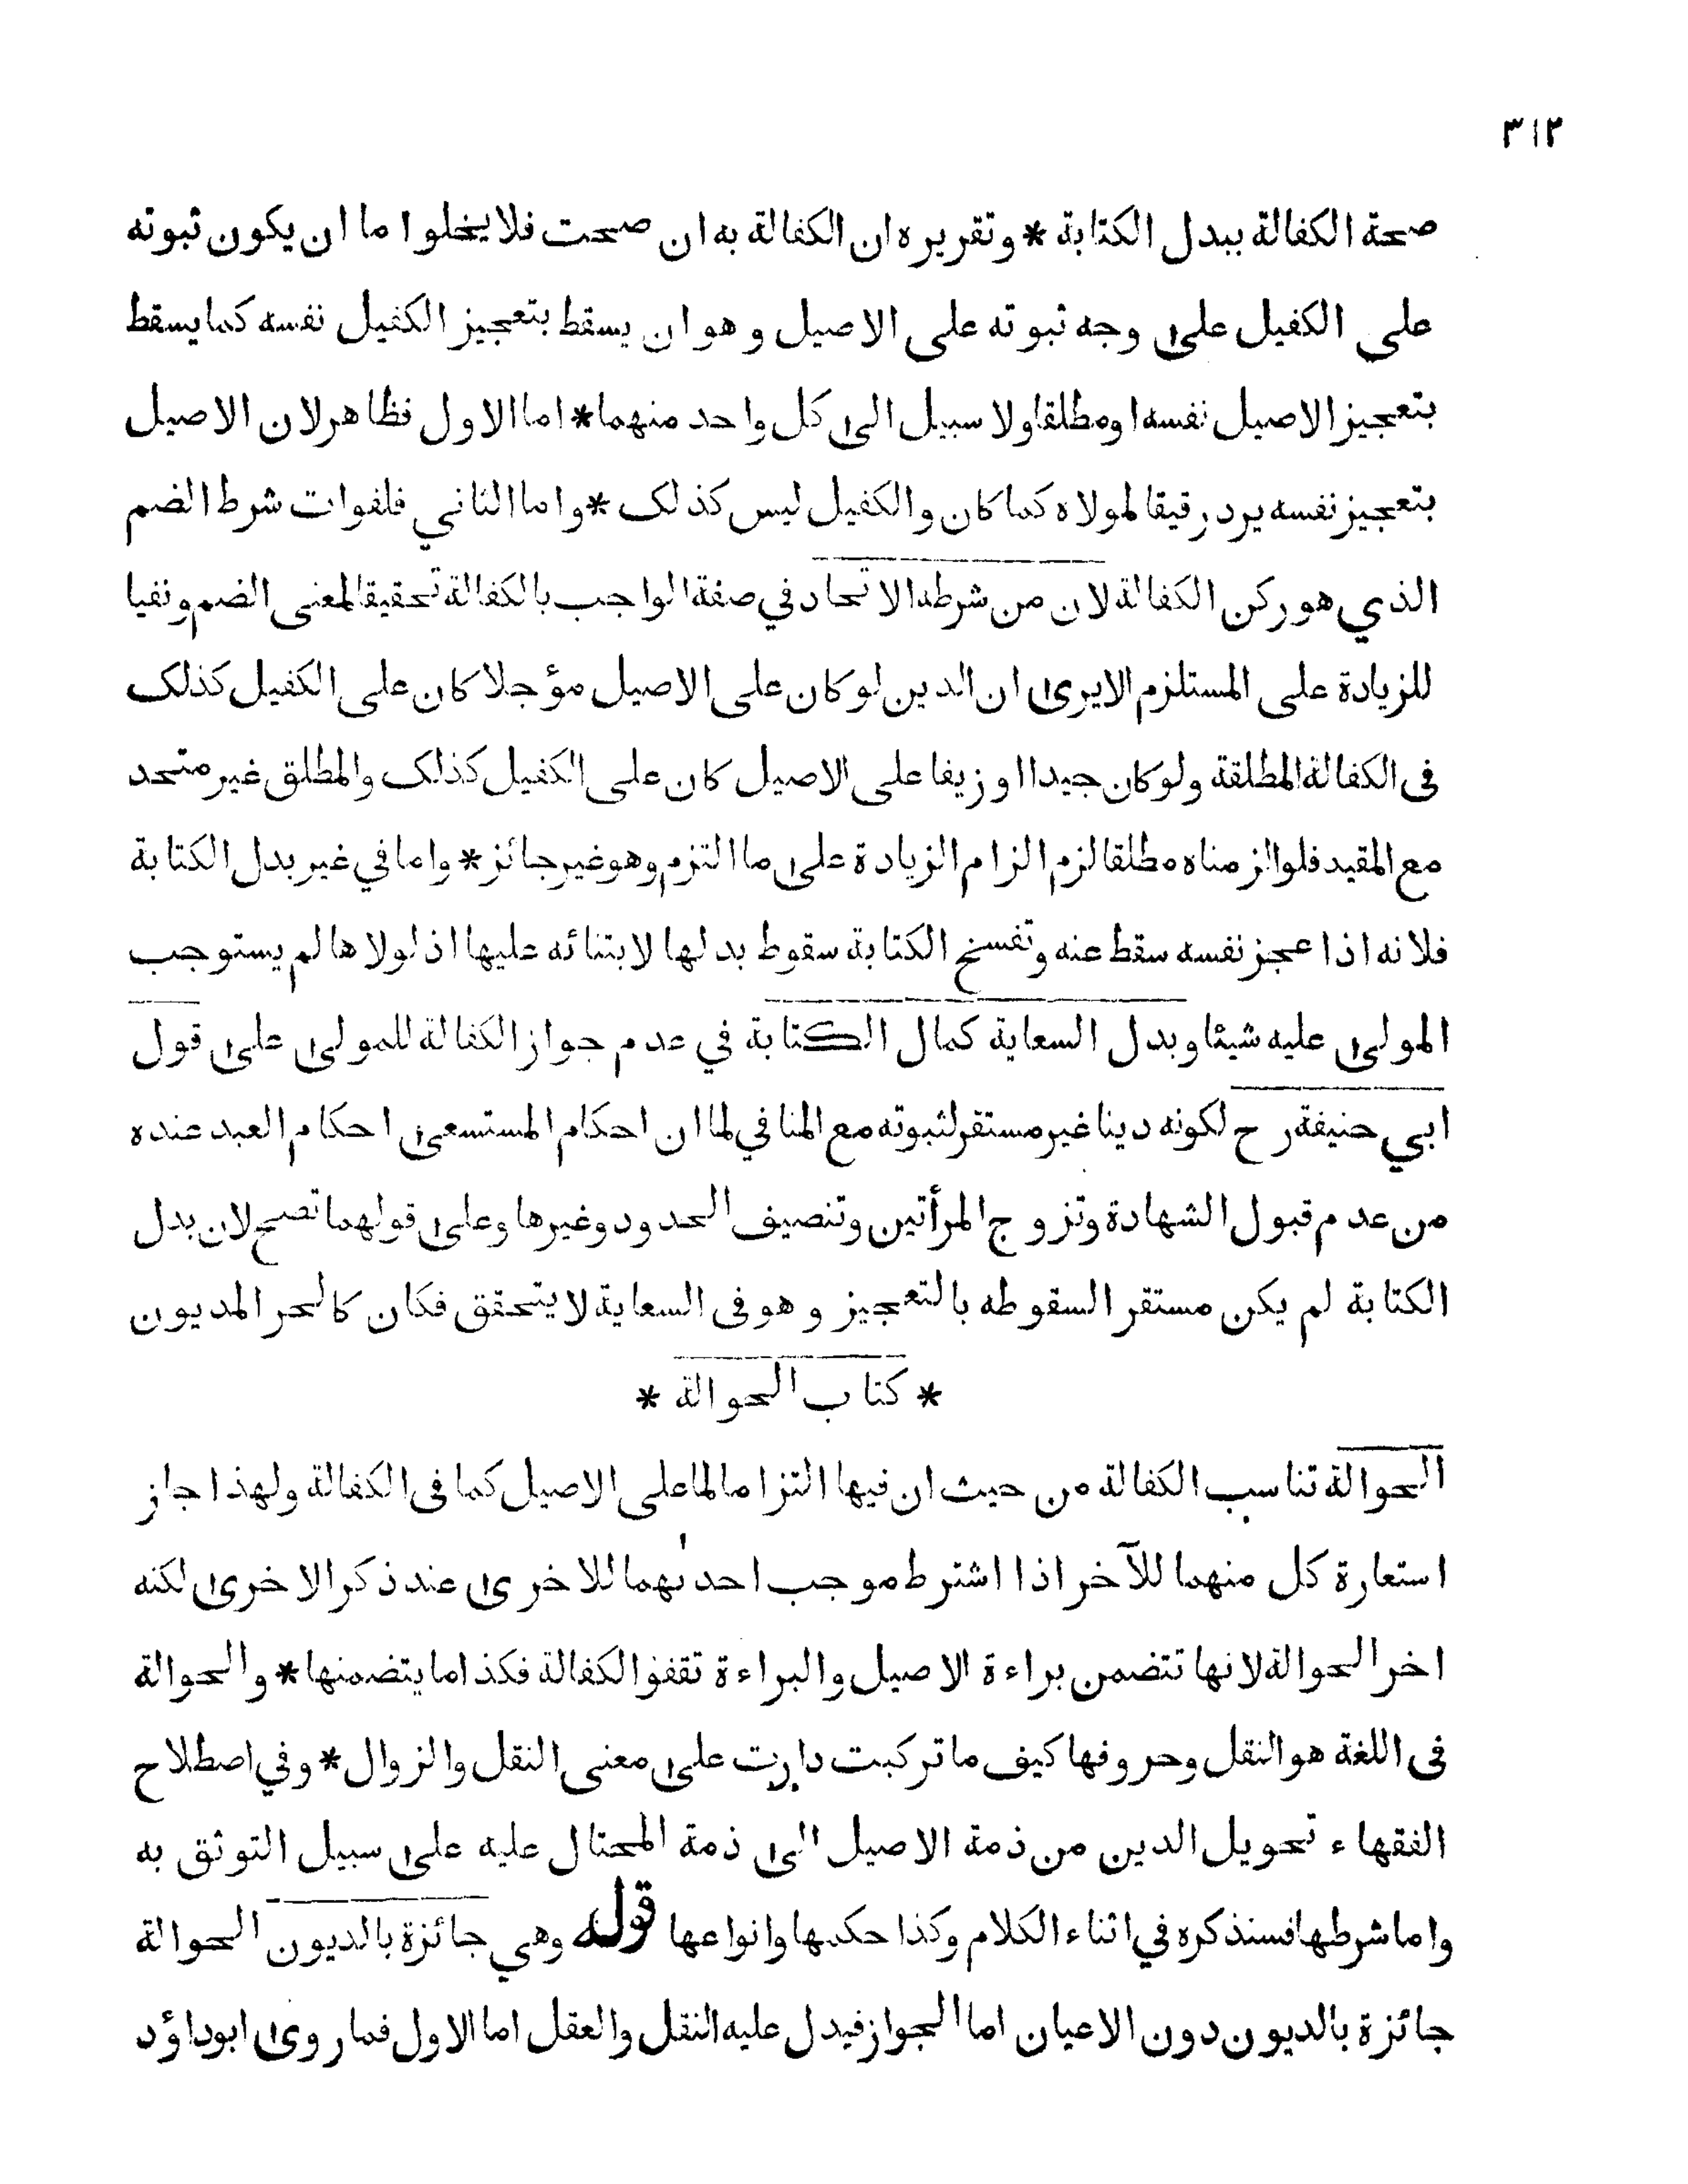 ٣١٢
صحة الكفالة ببدل الكتابة * وتقريره ان الكفالة به ان صحت فلا يخلوا ما ان يكون ثبوته
على الكفيل على وجه ثبوته على الاصيل وهو ان يسقط بتعجيز الكفيل نفسه كما يسقط
بتعجيز الاصيل نفسه او مطلقا ولا سبيل الى كل واحد منهما * اما الاول فظاهر لان الاصيل
بتعجيز نفسه يرد رقيقا لمولاه كما كان والكفيل ليس كذلك * واما الثاني فلفوات شرط الضم
الذي هو ركن الكفالة لان من شرطه الاتحاد في صفة الواجب بالكفالة تحقيقا لمعنى الضم ونفيا
للزيادة على المستلزم الايرى ان الدين لو كان على الاصيل مؤجلا كان على الكفيل كذلك
فى الكفالة المطلقة ولو كان جيدا او زيفا على الاصيل كان على الكفيل كذلك والمطلق غير متحد
مع المقيد فلو الزمناه مطلقا لزم الزام الزيادة على ما التزم وهو غير جائز * واما في غير بدل الكتابة
فلانه اذا عجز نفسه سقط عنه وتفسخ الكتابة سقوط بدلها لابتنائه عليها اذ لولاها لم يستوجب
المولى عليه شيئا وبدل السعاية كمال الكتابة في عدم جواز الكفالة للمولى على قول
ابي حنيفة رح لكونه دينا غير مستقر لثبوته مع المنافي لما ان احكام المستسعى احكام العبد عنده
من عدم قبول الشهادة وتزوج المرأتين وتنصيف الحدود وغيرها وعلى قولهما تصح لان بدل
الكتابة لم يكن مستقر السقوطه بالتعجيز وهو فى السعاية لا يتحقق فكان كالحر المديون
* كتاب الحوالة *
الحوالة تناسب الكفالة من حيث ان فيها التزاما لما على الاصيل كما فى الكفالة ولهذا جاز
استعارة كل منهما للآخر اذا اشترط موجب احدٰىهما للاخرى عند ذكر الاخرى لكنه
اخر الحوالة لانها تتضمن براءة الاصيل والبراءة تقفو الكفالة فكذا ما يتضمنها * والحوالة
فى اللغة هو النقل وحروفها كيف ما تركبت دارت على معنى النقل والزوال * وفي اصطلاح
الفقهاء تحويل الدين من ذمة الاصيل الى ذمة المحتال عليه على سبيل التوثق به
واما شرطها فسنذكره في اثناء الكلام وكذا حكمها وانواعها قوله وهي جائزة بالديون الحوالة
جائزة بالديون دون الاعيان اما الجواز فيدل عليه النقل والعقل اما الاول فما روى ابوداؤد